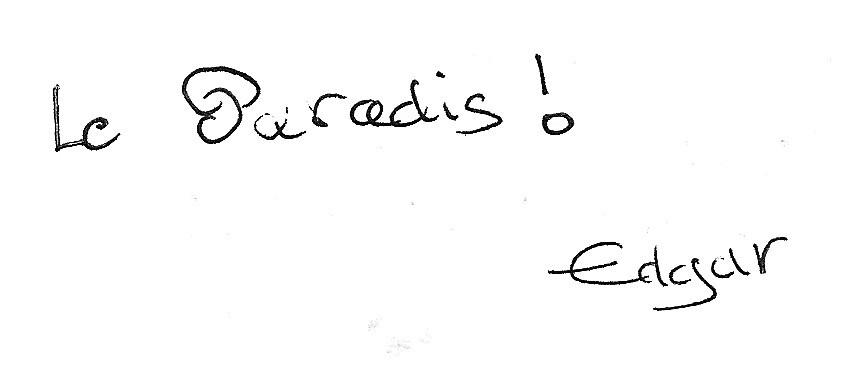 Le Paradis !
Edgar